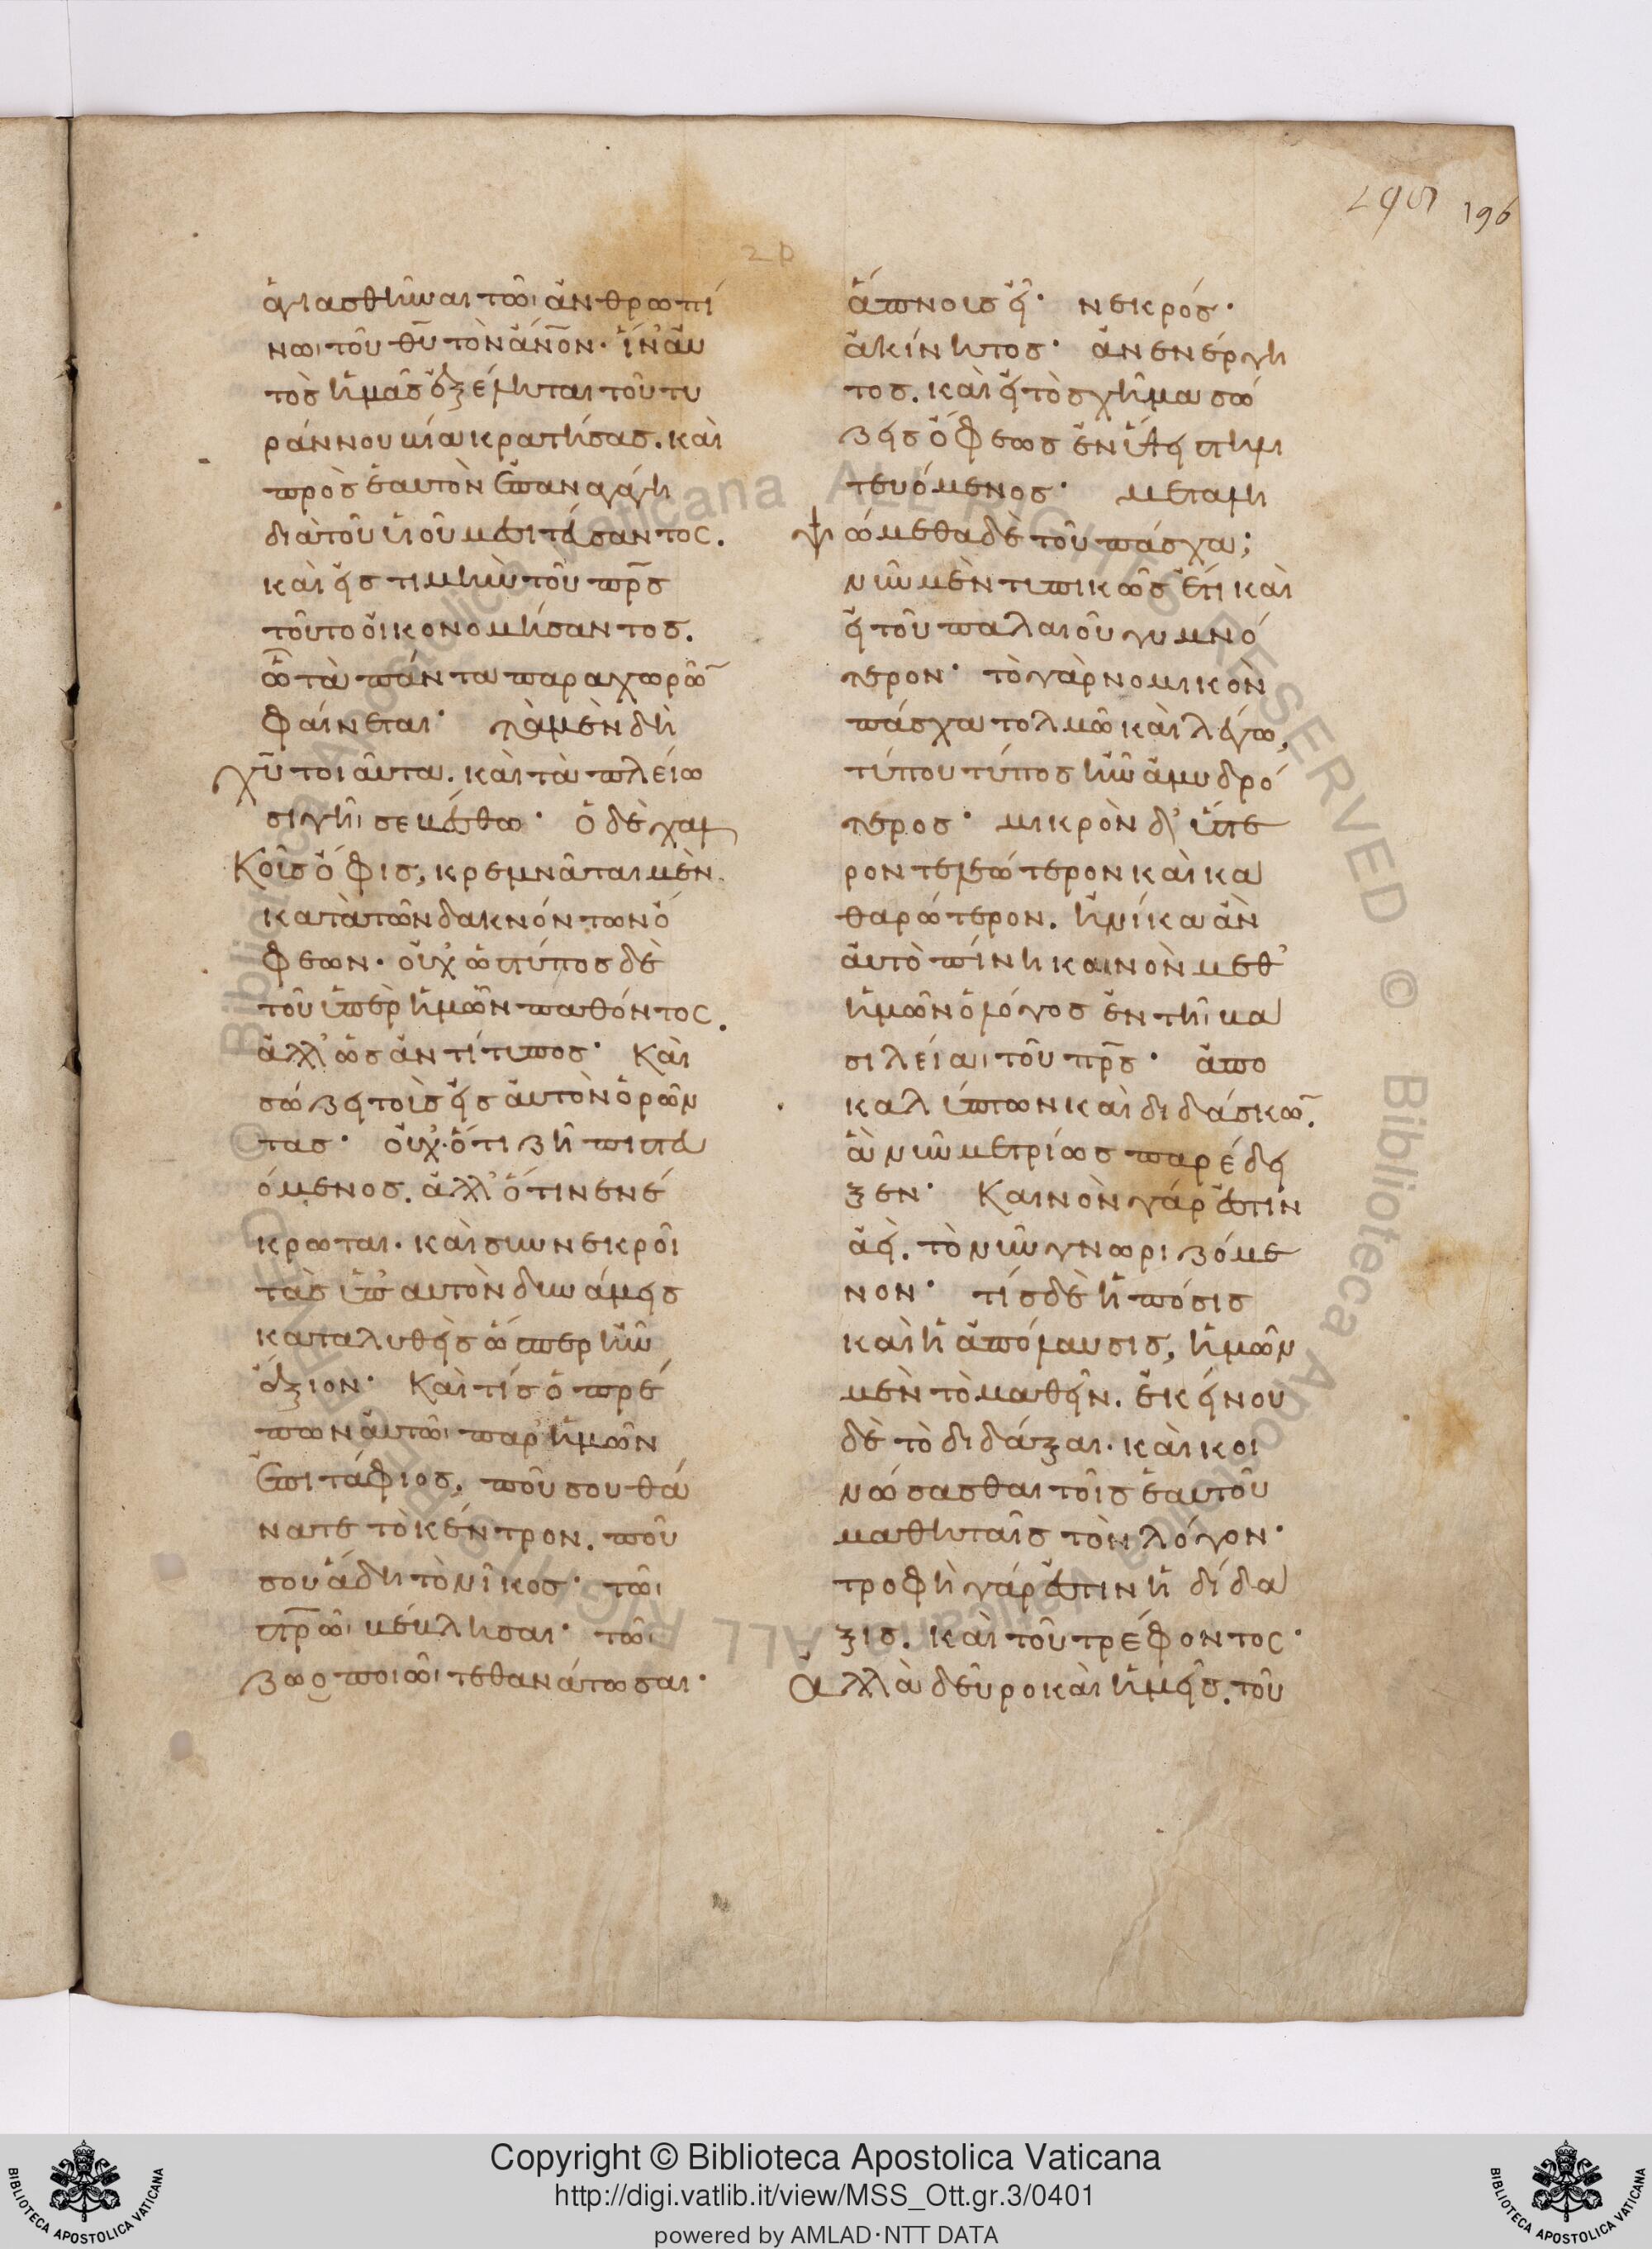 ϟϛ 196
ἁγιασθῆναι τῶι ἀνθρωπί
νωι τοῦ θῡ τὸν ἄν̅ον· ἵν' αὐ
τὸς ἡμᾶς ἐξέληται τοῦ τυ
ράννου βίαι κρατήσας. καὶ
πρὸς ἑαυτὸν ἐπαναγάγη
διὰ τοῦ υἱοῦ μεσιτεύσαντος.
καὶ εἰς τιμὴν τοῦ πρ̅ς
τοῦτο οἰκονομήσαντος.
ὧ τὰ πάντα παραχωρῶ̅
φαίνεται· τὰ μὲν δὴ
χῡ τοιαῦτα. καὶ τὰ πλείω
σιγῆι σεβέσθω· ὁ δὲ χαλ
κοῖς ὄφις, κρεμνᾶται μὲν
κατὰ τῶν δακνόντων ὄ
φεων· οὐχ' ὡς τύπος δὲ
τοῦ ὑπὲρ ἡμῶν παθόντος.
ἀλλ' ὡς ἀντίτυπος· καὶ
σώζει τοὺς εἰς αὐτὸν ὁρῶν
τας· οὐχ' ὅτι ζῆ πιστευ
όμενος. ἀλλ' ὅτι νενέ
κρωται· καὶ συννεκροῖ
τὰς ὑπ' αὐτὸν δυνάμεις
καταλυθεὶς ὥσπερ ἦν
ἄξιον· καὶ τίς ὁ πρέ
πων αὐτῶι παρ' ἡμῶν
ἐπιτάφιος, ποῦ σου θά
νατε τὸ κέντρον. ποῦ
σου ἅδη τὸ νῖκος· τῶι
στρ̅ῶι βέβλησαι· τῶι
ζωοποιῶι τεθανάτωσαι·
ἄπνους εἶ· νεκρός·
ἀκίνητος· ἀνενέργη
τος. καὶ εἰ τὸ σχῆμα σώ
ζεις ὄφεως ἐν ὕψει στηλι
τευόμενος· μεταλη
ψώμεθα δὲ τοῦ πάσχα;
νῦν μὲν τυπικῶς ἔτι καὶ
εἰ τοῦ παλαιοῦ γυμνό
τερον· τὸ γὰρ νομικὸν
πάσχα τολμῶ καὶ λέγω,
τύπου τύπος ἦν ἀμυδρό
τερος· μικρὸν δ' ὕστε
ρον τελεώτερον καὶ κα
θαρώτερον. ἡνίκα ἂν
αὐτὸ πίνη καινὸν μεθ'
ἡμῶν ὁ λόγος ἐν τῆι βα
σιλείαι τοῦ πρ̅ς· ἀπο
καλύπτων καὶ διδάσκω̅.
ἃ νῦν μετρίως παρέδει
ξεν· καινὸν γάρ ἐστιν
ἀεὶ. τὸ νῦν γνωριζόμε
νον· τίς δὲ ἡ πόσις
καὶ ἡ ἀπόλαυσις, ἡμῶν
μὲν τὸ μαθεῖν. ἐκείνου
δὲ τὸ διδάξαι· καὶ κοι
νώσασθαι τοῖς ἑαυτοῦ
μαθηταῖς τὸν λόγον·
τροφὴ γάρ ἐστιν ἡ δίδα
ξις. καὶ τοῦ τρέφοντος·
ἀλλὰ δεῦρο καὶ ἡμεῖς. τοῦ
Copyright © Biblioteca Apostolica Vaticana
http://digi.vatlib.it/view/MSS_Ott.gr.3/0401
powered by AMLAD·NTT DATA
BIBLIOTECA APOSTOLICA VATICANA
BIBLIOTECA APOSTOLICA VATICANA